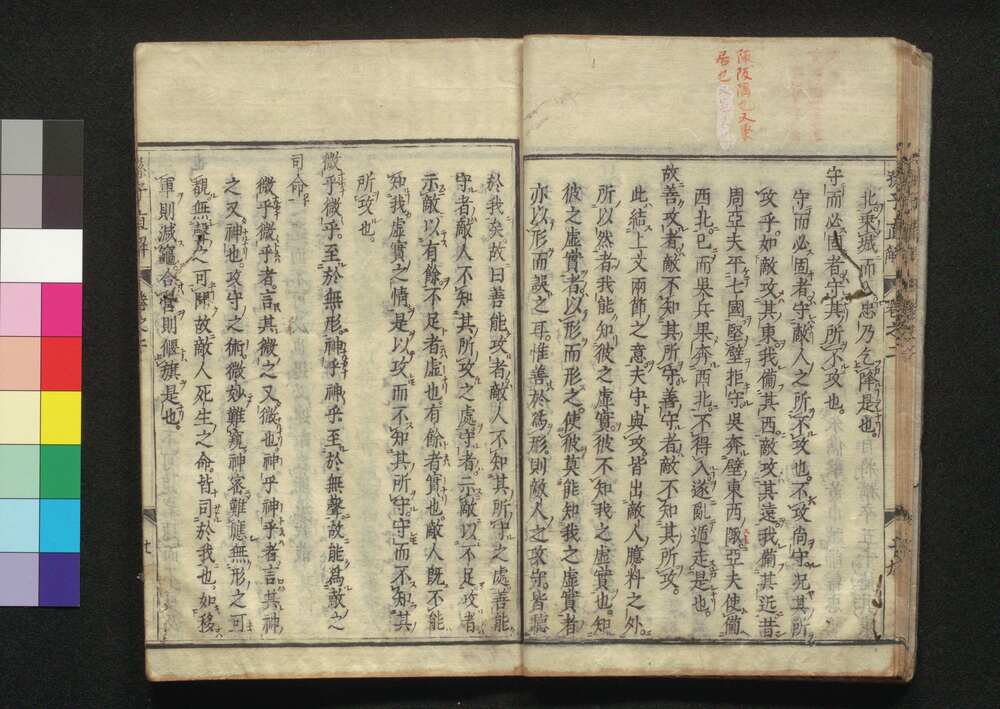 陬阪隅也又東
居也又
北乗城而入忠乃之陣是也
守而必固者守其所不攻也
守而必固者守敵人之所不攻也不攻尚守況其所
攻乎如敵攻其東我備其西敵攻其遠我備其近昔
周亞夫平七國堅壁拒守吳奔壁東西陬亞夫使備
西北已而吳兵果奔西北不得入遂亂遁走是也
故善攻者敵不知其所守善守者敵不知其所攻
此結上文兩節之意夫守與攻皆出敵人臆料之外
所以然者我能知彼之虛實彼不知我之虛實也知
彼之虛實者以形而形之使彼莫能知我之虛實者
亦以形而誤之耳惟善於爲形則敵人之攻守皆聽
於我矣故曰善能攻者敵人不知其所守之處善能
守者敵人不知其所攻之處守者示敵以不足攻者
示敵以有餘不足者虛也有餘者實也敵人既不能
知我虛實之情是以攻而不知其所守守而不知其
所攻也
微乎微乎至於無形神乎神乎至於無聲故能爲敵之
司命
微乎微乎者言其微之又微也神乎神乎者言其神
之又神也攻守之術微妙難窺神密難應無形之可
觀無聲之可聞故敵人死生之命皆司於我也如移
軍則減竈合營則偃旗是也
孫子直解
卷之二